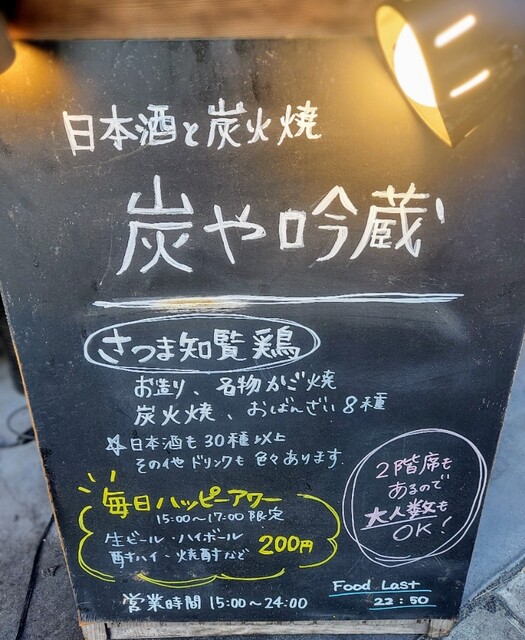 日本酒と炭火焼
炭や吟蔵
さつま知覧鶏
お造り、名物かご焼
炭火焼、おばんざい8種
☆日本酒も30種以上
その他ドリンクも色々あります。
2階席も
あるので
大人数も
OK!
毎日ハッピーアワー
15:00〜17:00限定
生ビール・ハイボール
酎ハイ・焼酎など 200円
Food Last
22:50
営業時間15:00〜24:00